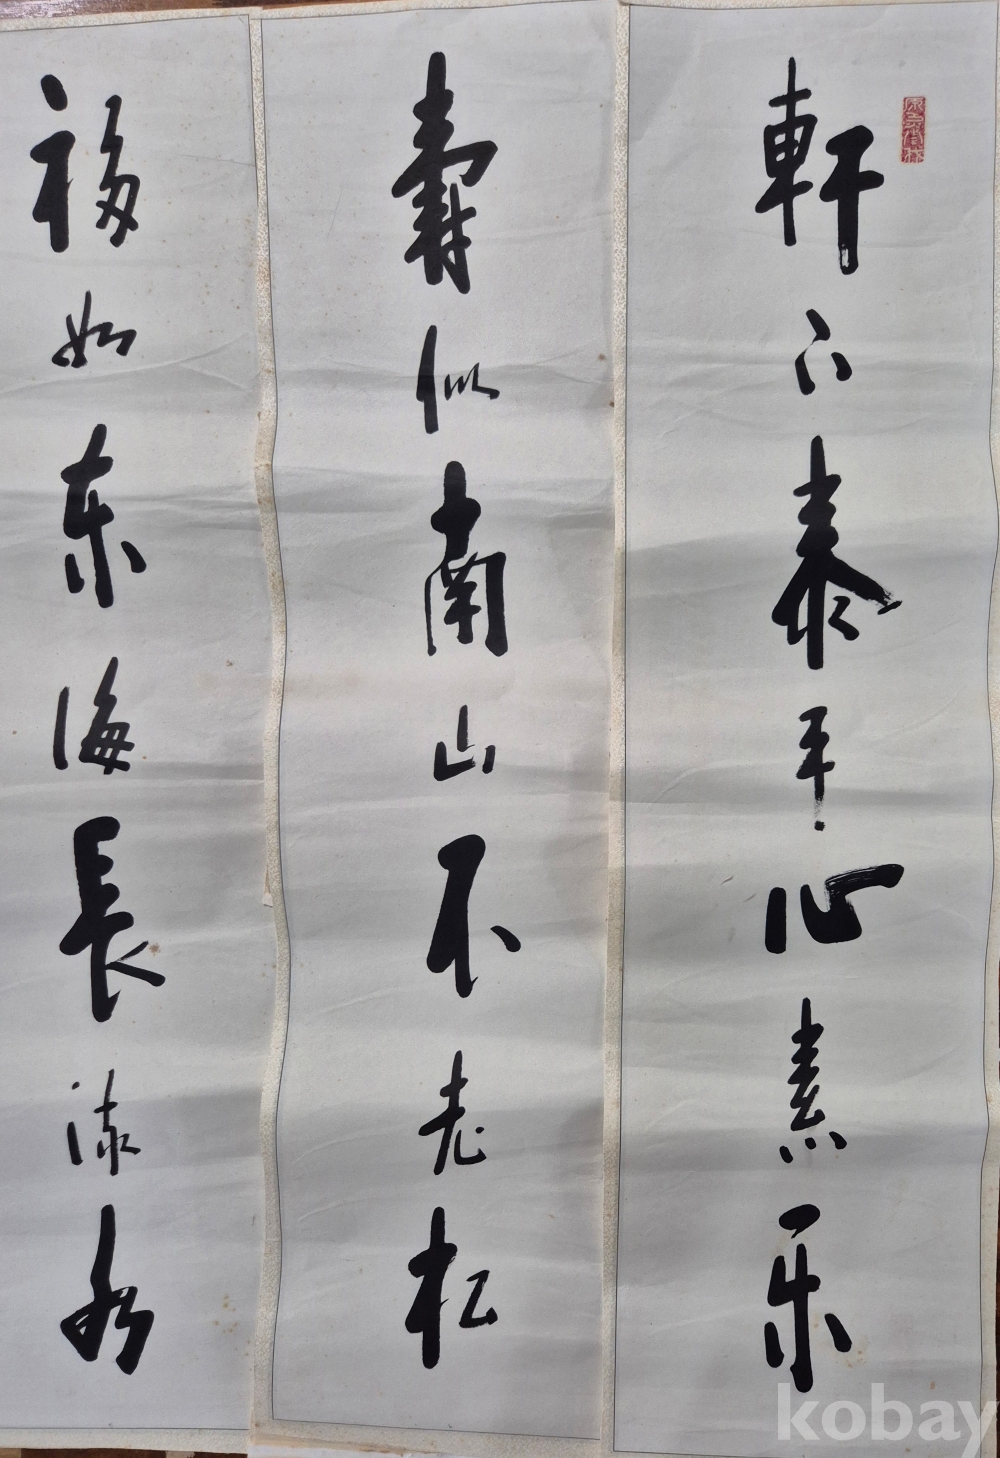 軒下泰平心素乐
壽似南山不老松
福如东海長流水
kobay